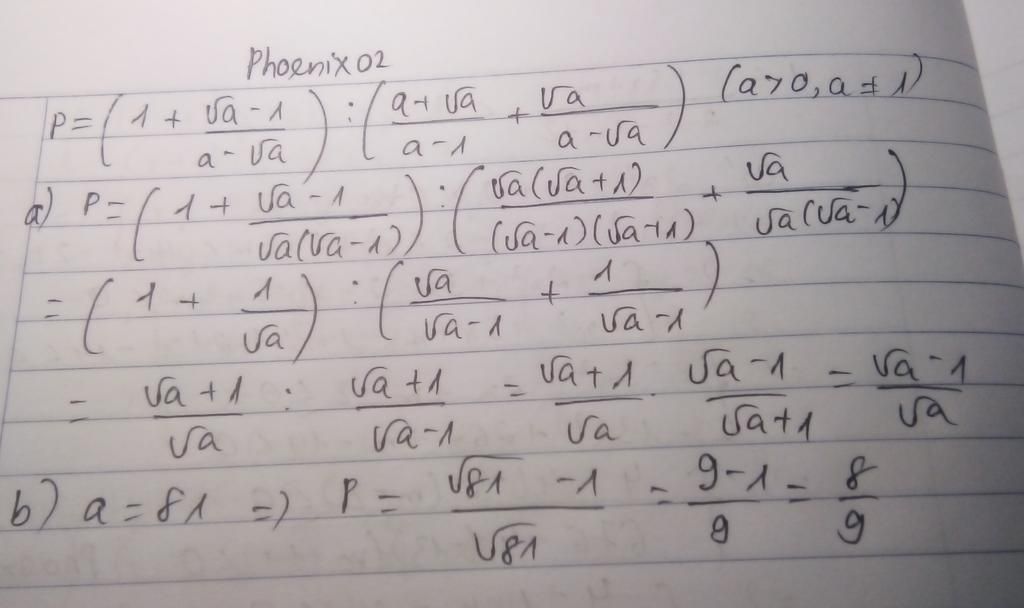 Phoenix02
P = (1 + (√a - 1)/(a - √a)) : ((a + √a)/(a - 1) + √a/(a - √a)) (a > 0, a ≠ 1)
a) P = (1 + (√a - 1)/(√a(√a - 1))) : ((√a(√a + 1))/((√a - 1)(√a + 1)) + √a/(√a(√a - 1)))
= (1 + 1/√a) : (√a/(√a - 1) + 1/(√a - 1))
= (√a + 1)/√a : (√a + 1)/(√a - 1) = (√a + 1)/√a . (√a - 1)/(√a + 1) = (√a - 1)/√a
b) a = 81 => P = (√81 - 1)/√81 = (9 - 1)/9 = 8/9